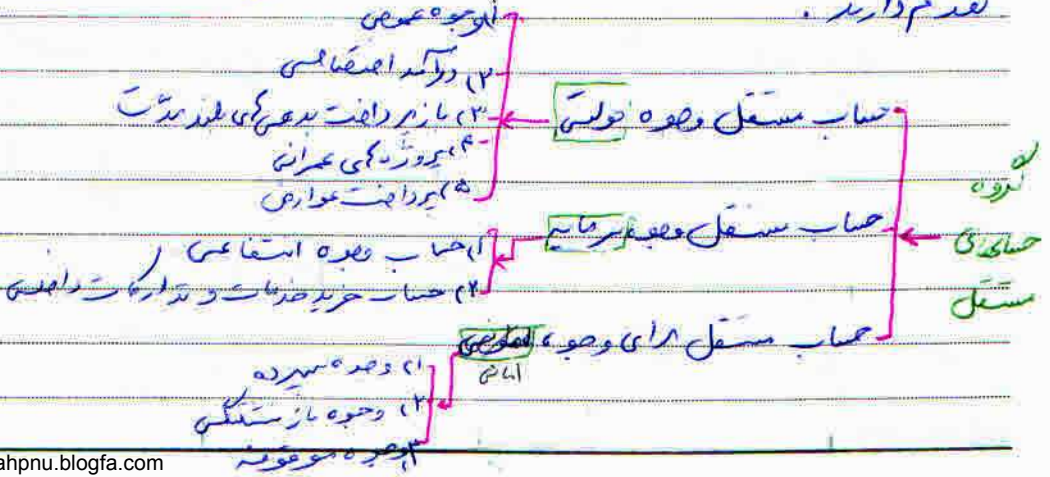 تقدم دارند .
گروه
حسابداری
مستقل
حساب مستقل وجوه دولتی
۱) وجوه عمومی
۲) درآمد اختصاصی
۳) باز پرداخت بدهی های بلند مدت
۴) پروژه های عمرانی
۵) پرداخت عوارض
حساب مستقل وجوه سرمایه
۱) حساب وجوه انتفاعی
۲) حساب خرید خدمات و تدارکات داخلی
حساب مستقل برای وجوه
امانی
۱) وجوه سپرده
۲) وجوه بازنشستگی
۳) وجوه موقوفه
ahpnu.blogfa.com